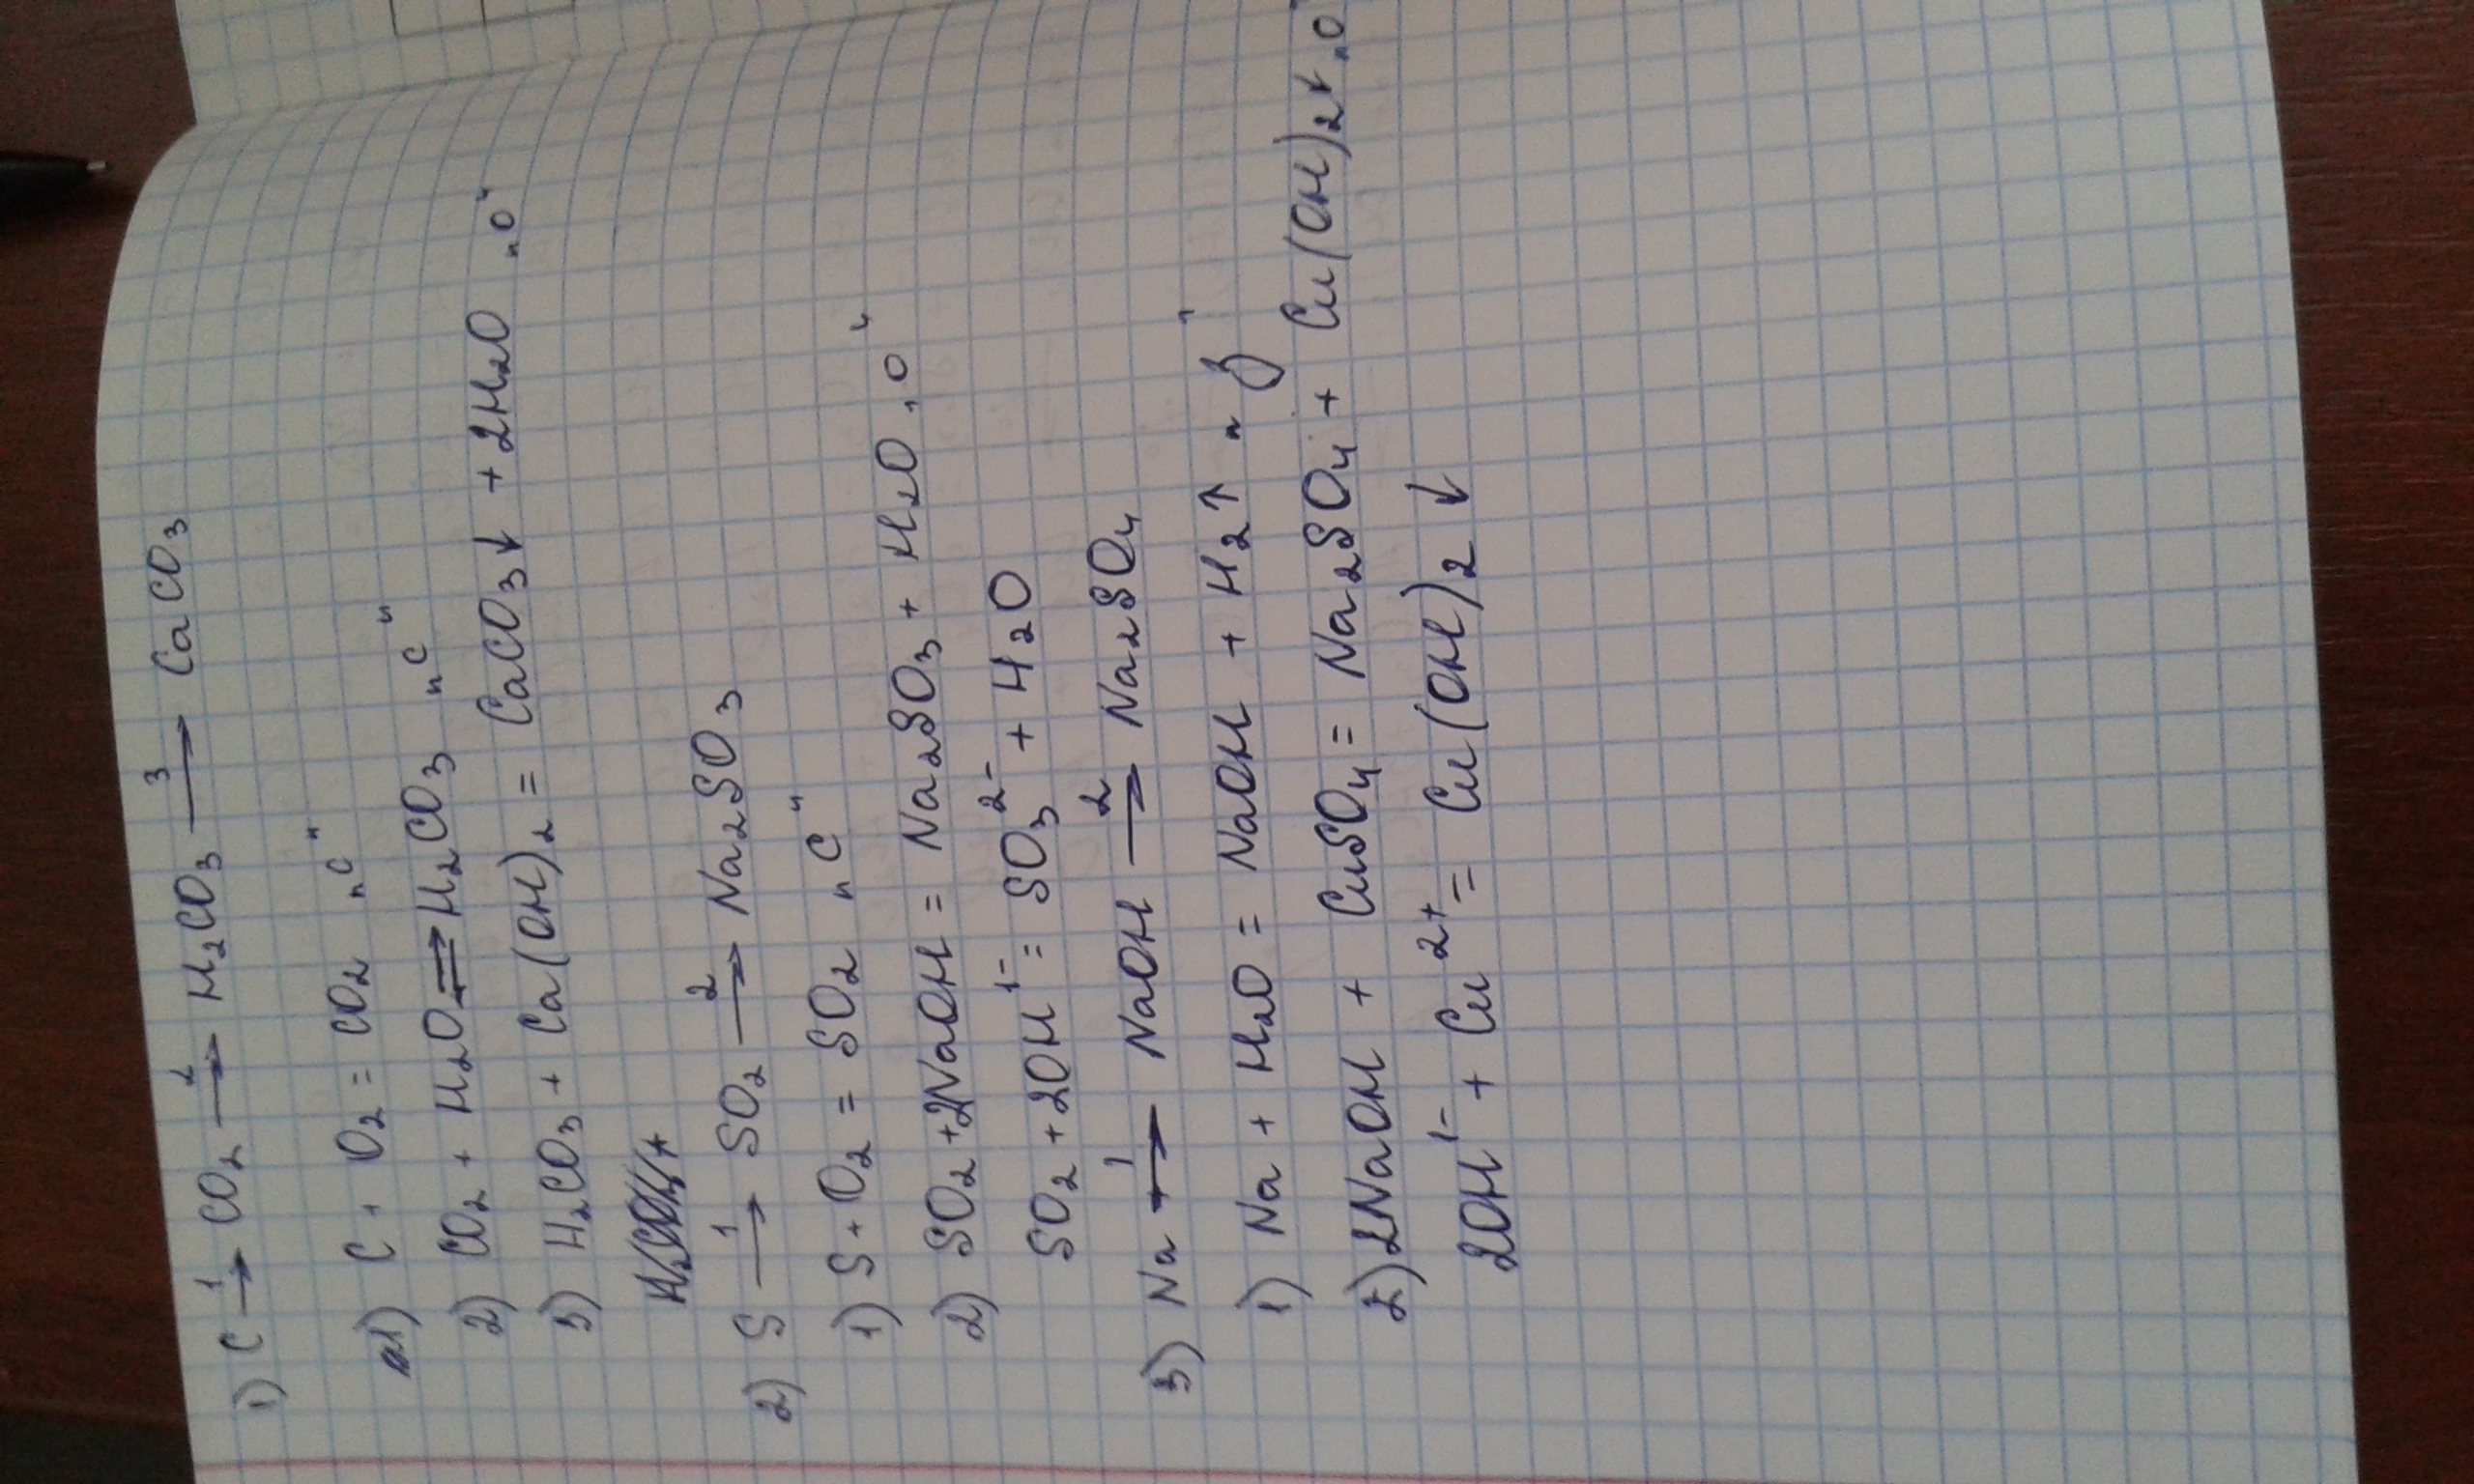 1) C →¹ CO₂ →² H₂CO₃ →³ CaCO₃
1) C + O₂ = CO₂ „С“
2) CO₂ + H₂O ⇌ H₂CO₃ „С“
3) H₂CO₃ + Ca(OH)₂ = CaCO₃↓ + 2H₂O „О“
2) S →¹ SO₂ →² Na₂SO₃
1) S + O₂ = SO₂ „С“
2) SO₂ + 2NaOH = Na₂SO₃ + H₂O „О“
SO₂ + 2OH¹⁻ = SO₃²⁻ + H₂O
3) Na →¹ NaOH →² Na₂SO₄
1) Na + H₂O = NaOH + H₂↑ „З“
2) 2NaOH + CuSO₄ = Na₂SO₄ + Cu(OH)₂↓ „О
2OH¹⁻ + Cu²⁺ = Cu(OH)₂↓